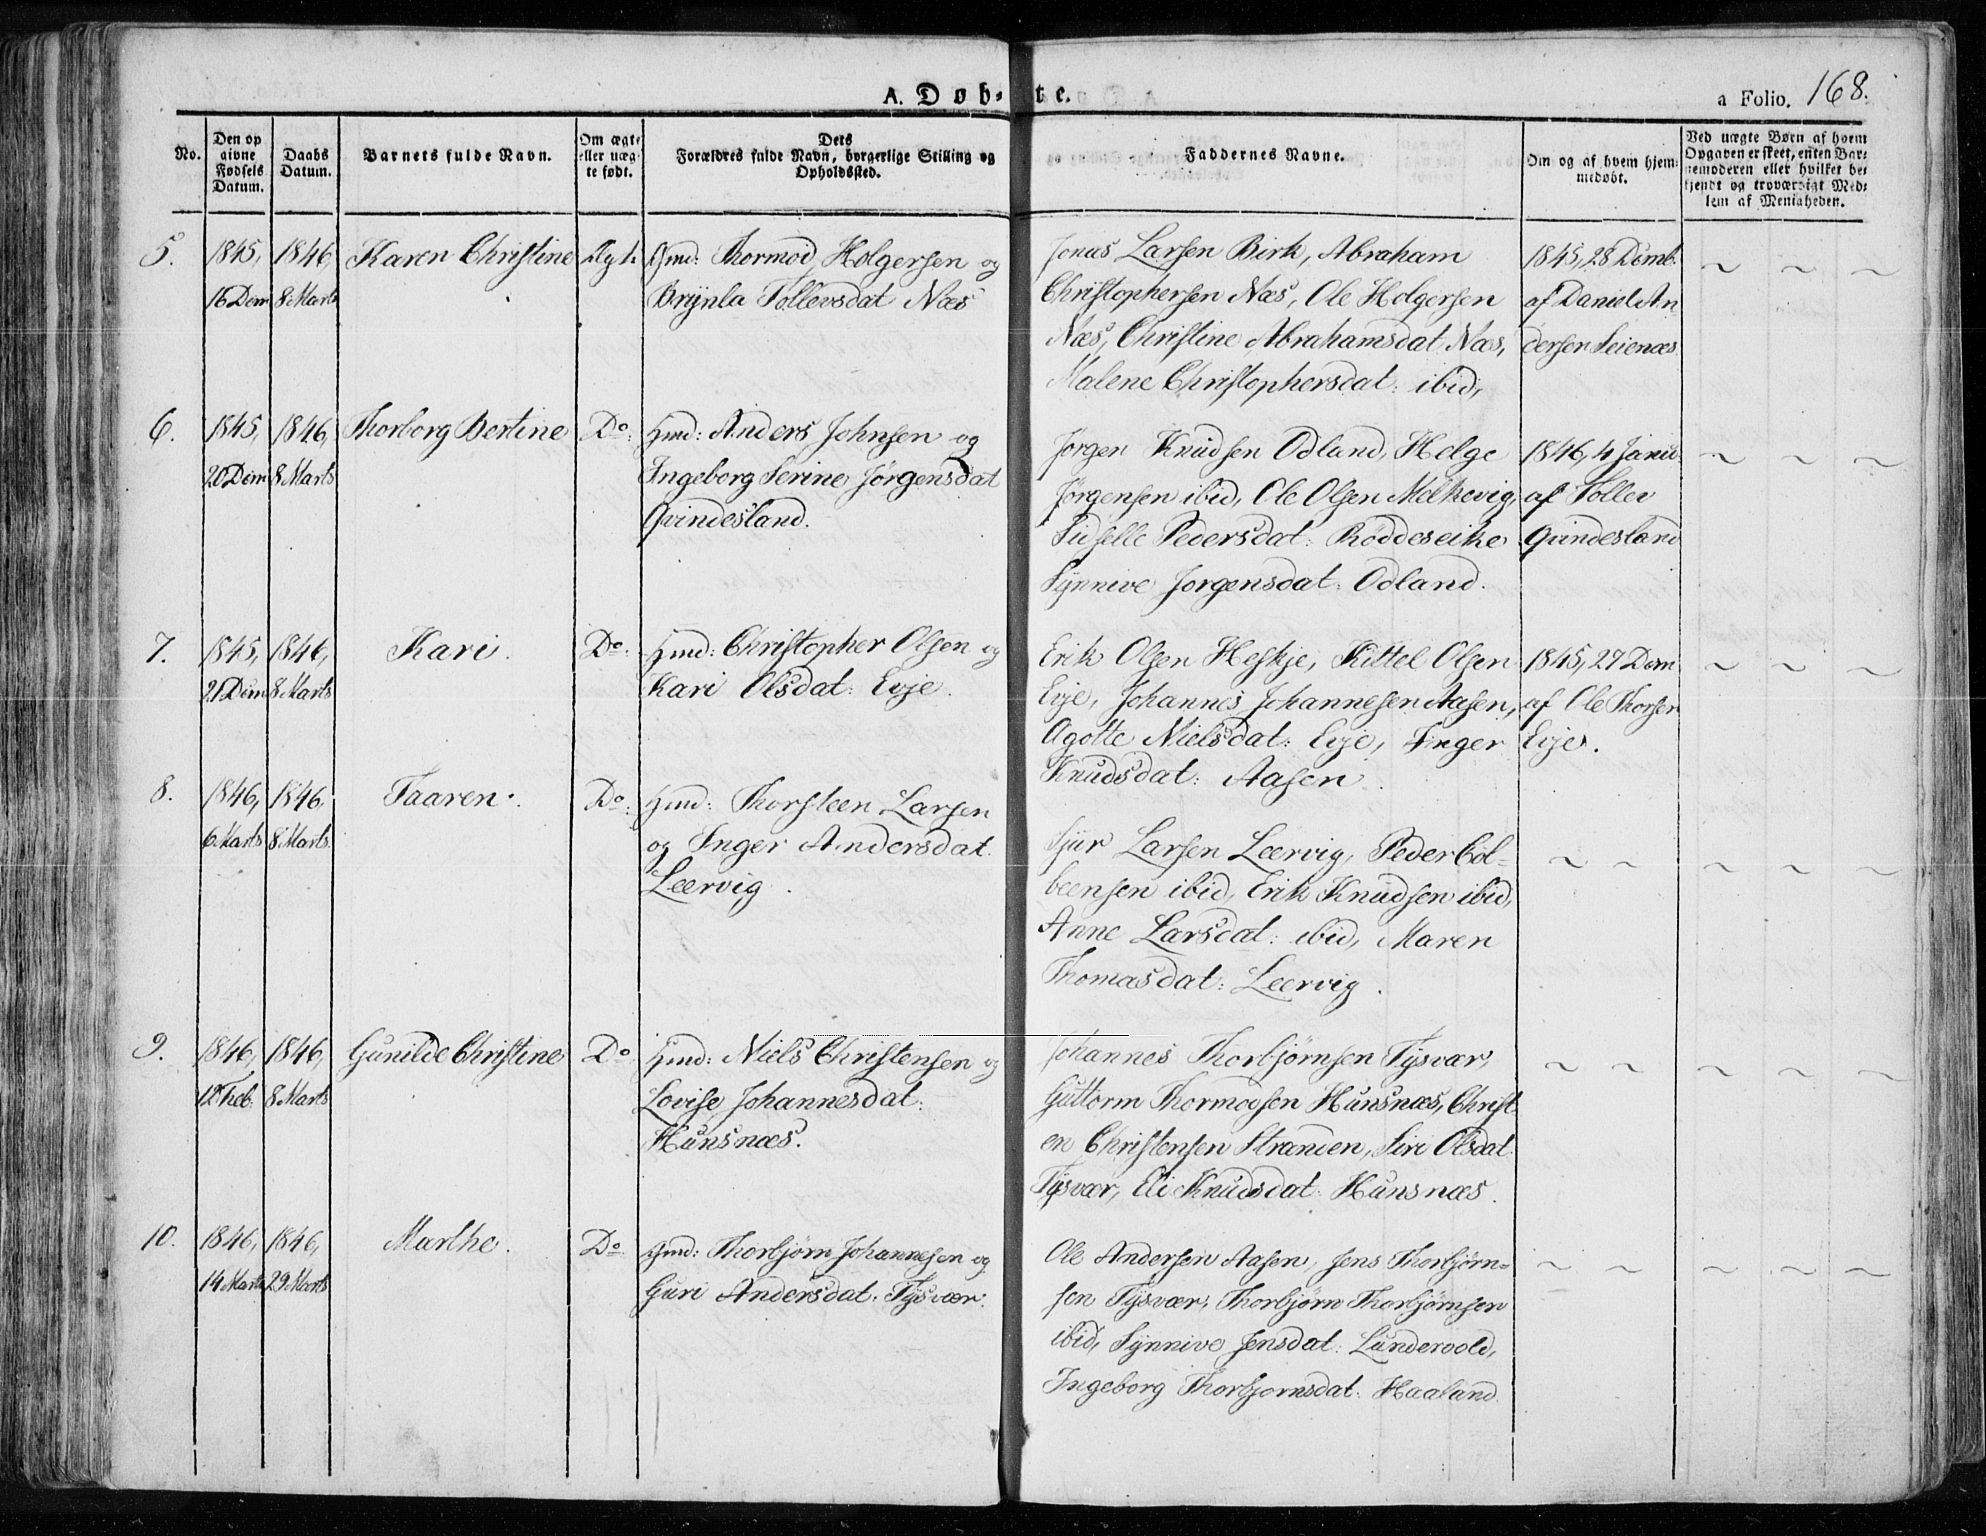 A. Døb-te.
a Folio. 168.
No.
Den op
givne
Fødsels
Datum.
Daabs
Datum.
Barnets fulde Navn.
Om ægte
eller uæg-
te født.
Dets
Forældres fulde Navn, borgerlige Stilling og
Opholdssted.
Faddernes Navne.
Om og af hvem hjem-
medøbt.
Ved uægte Børn af hvem
Opgaven er skeet, enten Bar-
nemoderen eller hvilket be-
kjendt og troværdigt Med-
lem af Menigheden.
5.
1845,
16 Dem
1846,
8 Marts
Karen Christine
Ægt.
Hmd: Thormod Holgersen og
Brynla Tollevsdat Næs
Jonas Larsen Birk, Abraham
Christophersen Næs, Ole Holgersen
Næs, Christine Abrahamsdat Næs,
Malene Christophersdat: ibid,
1845, 28 Demb.
af Daniel An
dersen Leienæs
6.
1845,
20 Dem
1846,
8 Marts
Thorborg Bertine
Do.
Hmd: Anders Johnsen og
Ingeborg Serine Jørgensdat
Qvindesland.
Jørgen Knudsen Odland, Helge
Jørgensen ibid, Ole Olsen Melkevig,
Sidselle Pedersdat: Røddeseike
Synnive Jorgensdat: Odland.
1846, 4 Janu.
af Tollev
Qvindesland
7.
1845,
21 Dem
1846,
8 Marts
Kari.
Do.
Hmd: Christopher Olsen og
Kari Olsdat: Evje.
Erik Olsen Heskje, Kittel Olsen
Evje, Johannes Johannesen Aasen,
Agotte Nielsdat: Evje, Inger
Knudsdat: Aasen.
1845, 27 Dem
af Ole Thorsen
Evje.
8.
1846,
6 Marts
1846.
8 Marts.
Taaren.
Do.
Hmd: Thorsteen Larsen
og Inger Andersdat.
Leervig.
Sjur Larsen Leervig, Peder Col=
beensen ibid, Erik Knudsen ibid,
Anne Larsdat: ibid, Maren
Thomasdat: Leervig.
9.
1846,
12 Feb.
1846,
8 Marts
Gunilde Christine
Do
Hmd: Niels Christensen og
Lovise Johannesdat:
Hunsnæs.
Johannes Thorbjørnsen Tysvær,
Guttorm Thormodsen Hunsnæs, Christ
en Christensen Stranden, Siri Olsdat
Tysvær, Eli Knudsdat: Hunsnæs.
10.
1846,
14 Marts
1846,
29 Marts
Marthe.
Do
Hmd: Thorbjørn Johannesen og
Guri Andersdat. Tysvær.
Ole Andersen Aasen, Jens Thorbjørn=
sen Tysvær, Thorbjørn Thorbjørnsen
ibid, Synnive Jensdat: Lundevold,
Ingeborg Thorbjornsdat: Haaland.